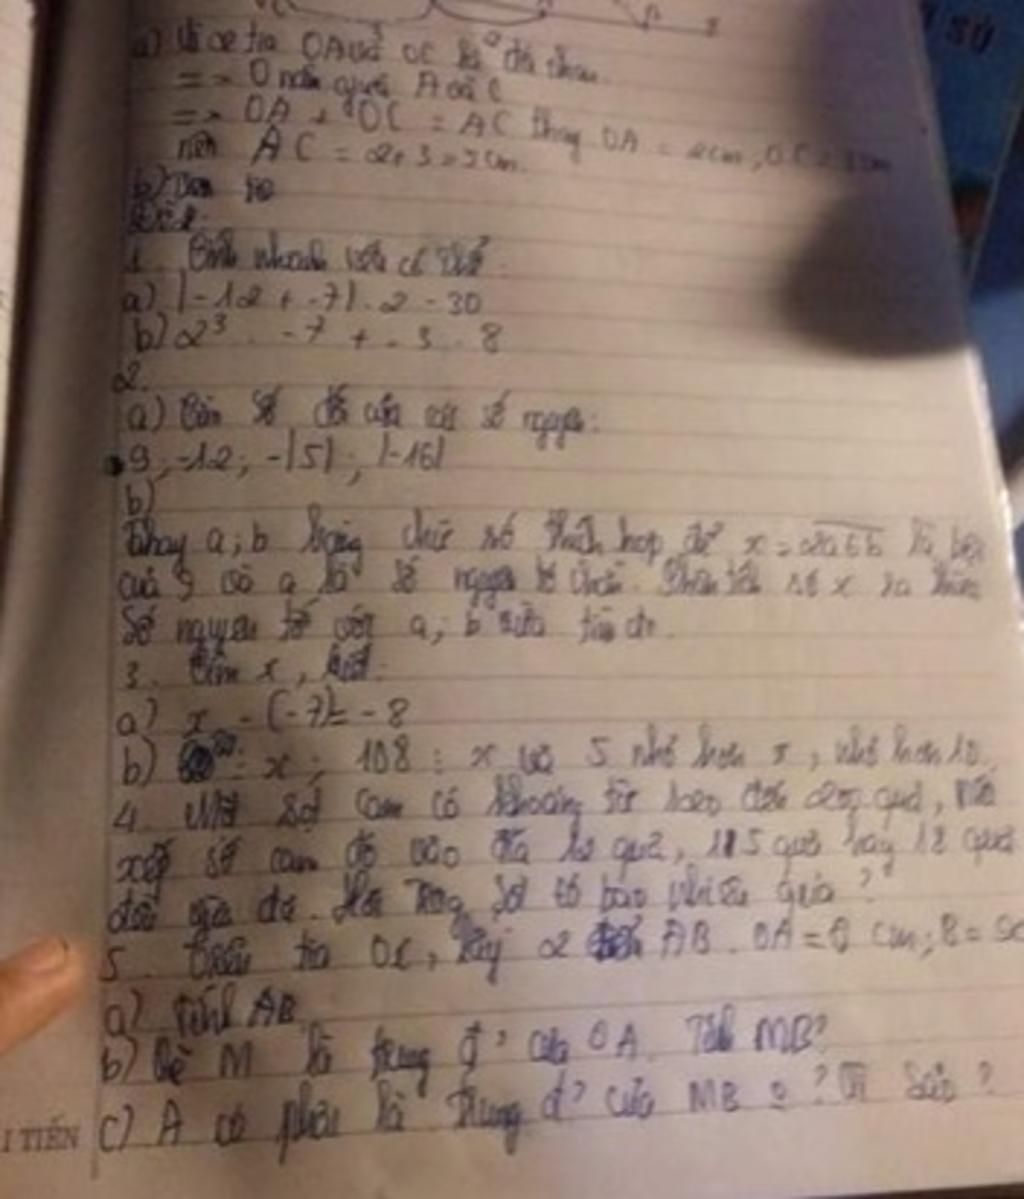 a) Vì tia OA và OC là đối nhau
=> O nằm giữa A và C
=> OA + OC = AC thay OA = 2cm, OC = 3cm
nên AC = 2+3=5cm.
b)
Đề
1. Tính nhanh nếu có thể
a) |-12 + -7| . 2 - 30
b) 2³ . -7 + -3 . 8
2.
a) Tìm số đối của các số nguyên:
9, -12; -|5|; |-16|
b)
Thay a, b bằng chữ số thích hợp để x = là bội
của 9 và a là số nguyên tố chẵn. Phân tích số x ra thừa
số nguyên tố với a, b vừa tìm đc.
3. Tìm x, biết:
a) x - (-7) = -8
b) : x ; 108 : x và 5 nhỏ hơn x, nhỏ hơn 10.
4. Một sọt cam có khoảng từ đến quả, Nếu
xếp số cam đó vào đĩa 10 quả, 15 quả hay 12 quả
đều vừa đủ. Hỏi trong sọt có bao nhiêu quả?
5. Trên tia lấy 2 AB. OA = cm; B =
a) Tính AB
b) M là trung đ' của OA. Tính MB?
c) A có phải là trung đ' của MB ? Vì Sao ?
I TIẾN